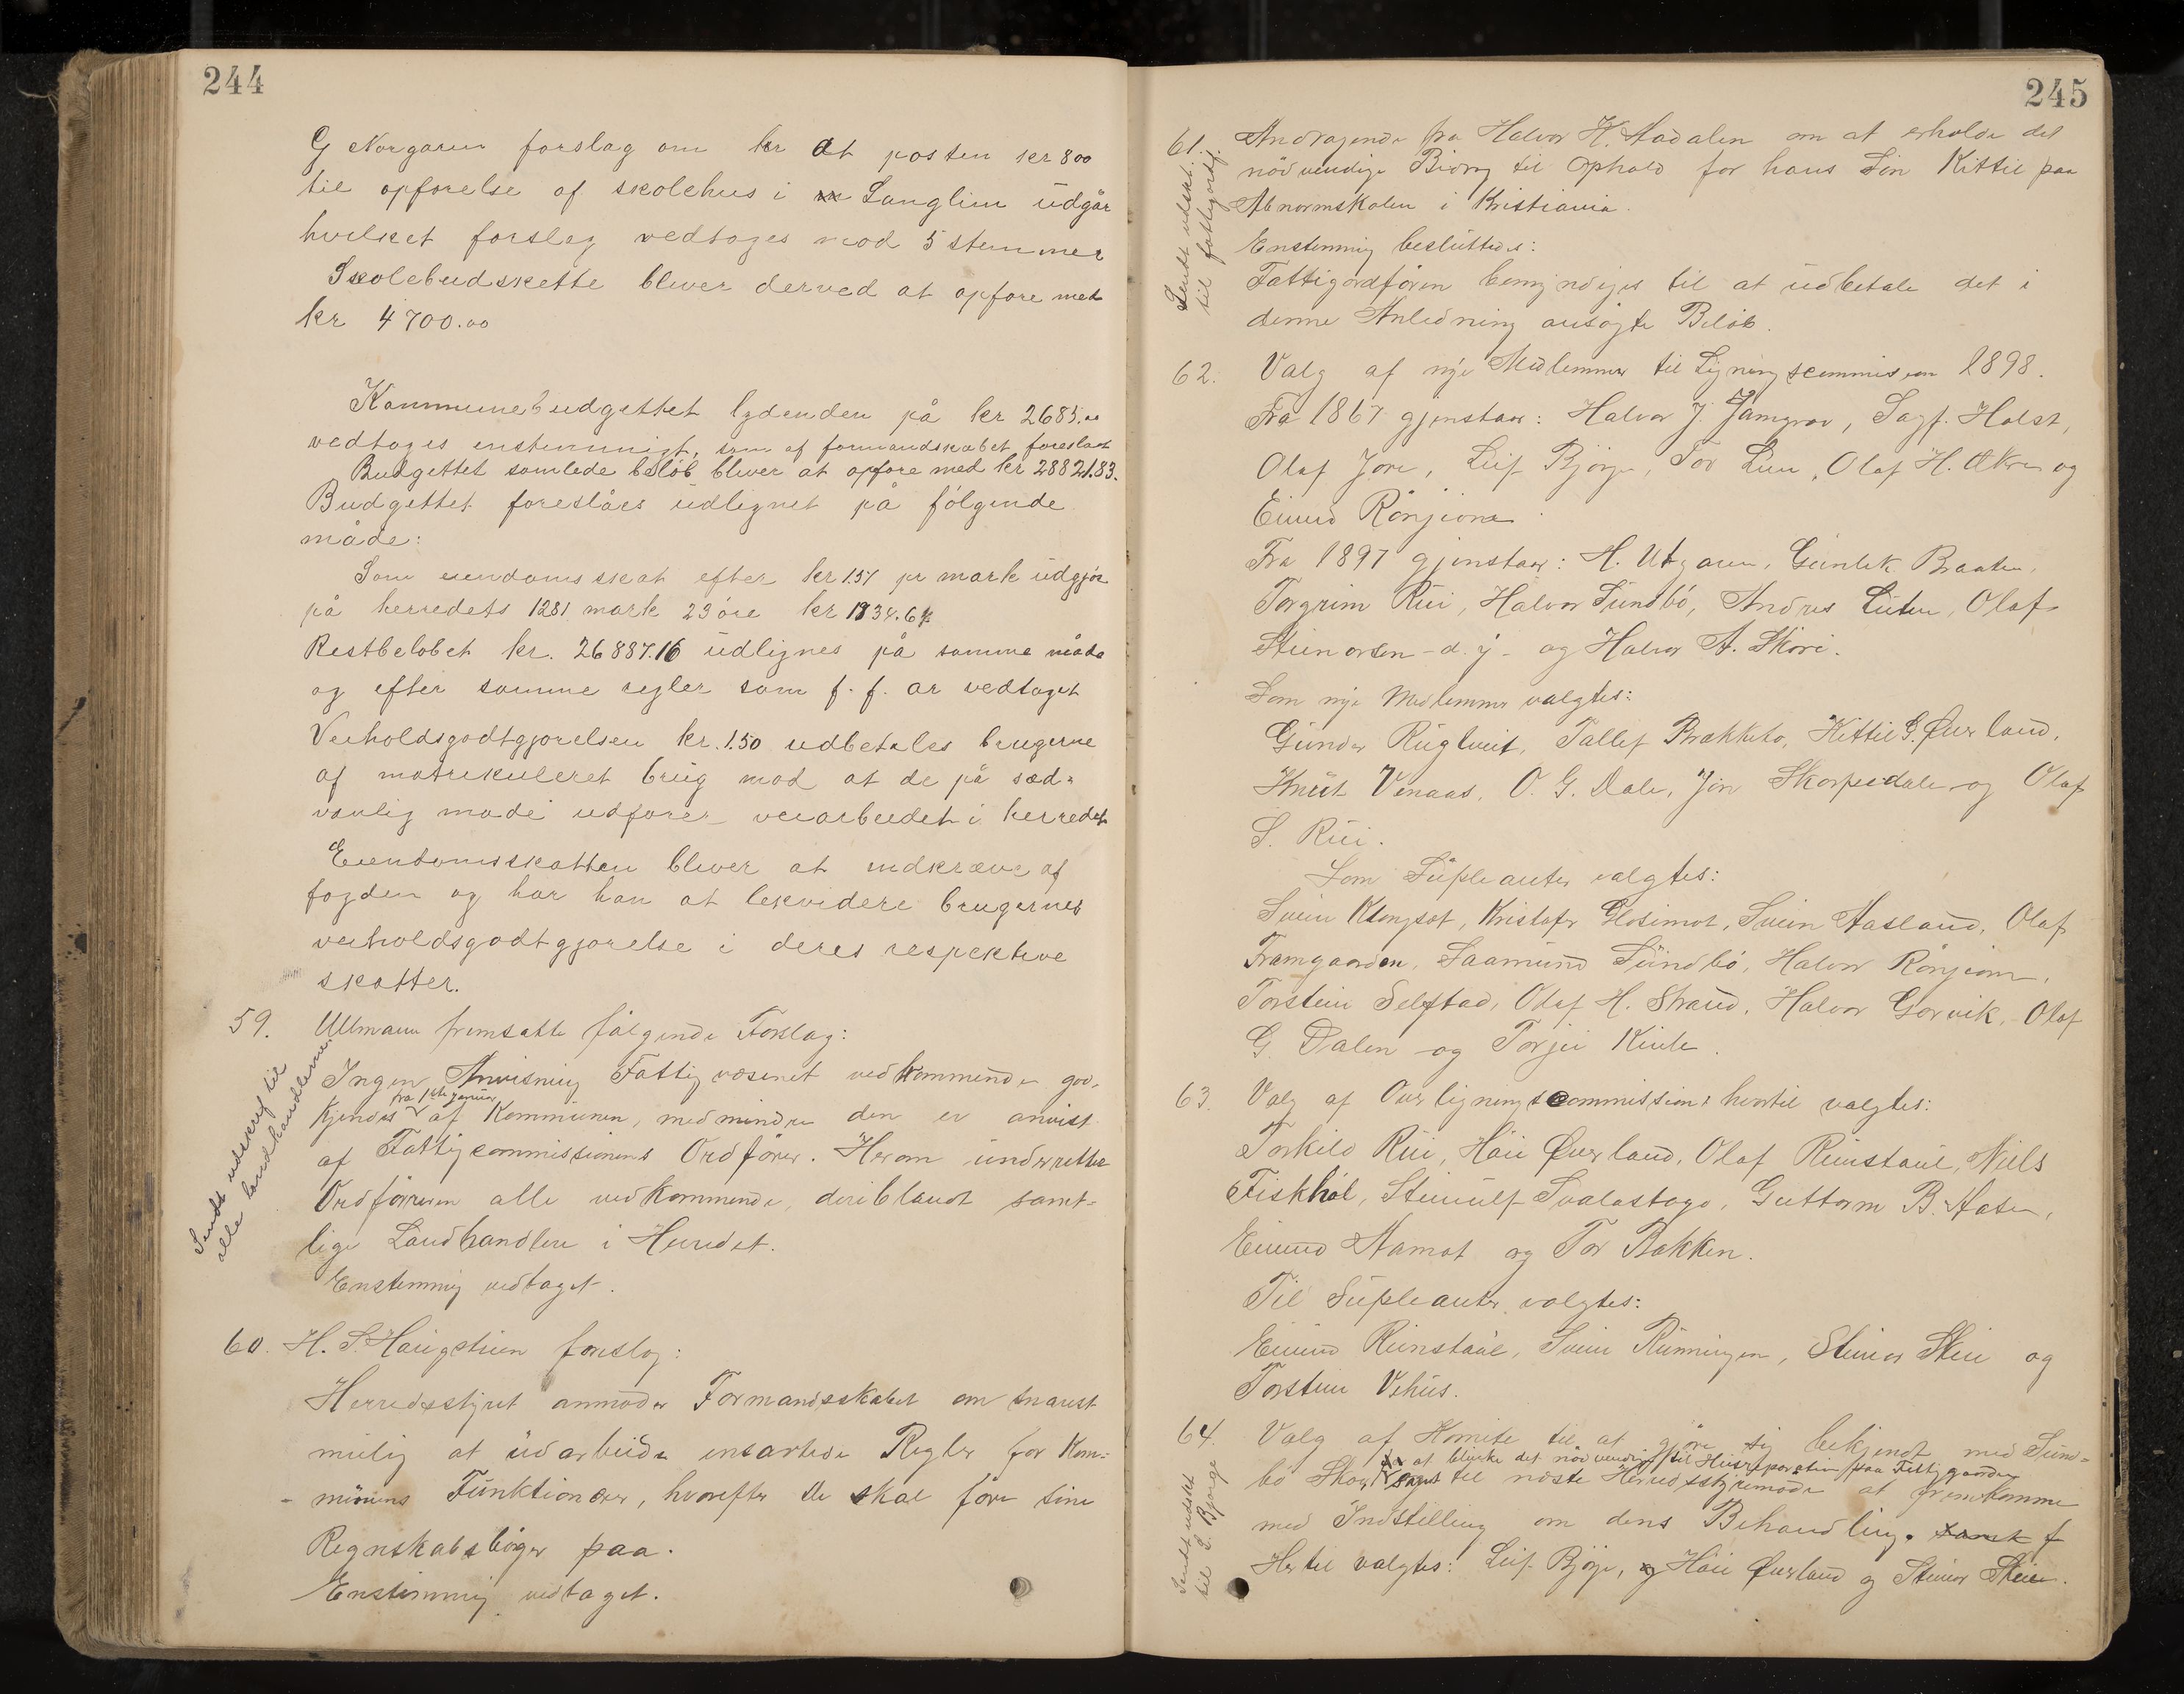 244
G Norgaren forslag om kr at posten kr 800
til opførelse af skolehus i Langlim udgår
hvilket forslag vedtoges mod 5 stemmer
Skolebudskette bliver derved at opføre med
kr 4700.00
Kommunebudgettet lydenden på kr 2685.00
vedtoges enstemmigt, som af formandskabet foreslaat
Budgettet samlede beløb bliver at opføre med kr 28821.83.
Budgettet foreslåes udlignet på følgende
måde:
Som eiendomsskat efter kr 1.57 pr mark udgjør
på herredets 1281 mark 23 øre kr 1934.67
Restbeløbet kr. 26887.16 udlignes på samme måde
og efter samme regler som f. f. ar vedtaget
Veiholdsgodtgjørelsen kr. 1.50 udbetales brugerne
af matrikuleret brug mod at de på sæd-
vanlig måde udfører veiarbeidet i herredet
Eiendomsskatten bliver at indkræve af
fogden og har han at lekvidere brugernes
veiholdsgodtgjørelse i deres respektive
skatter.
59. Ullmann fremsatte følgende Forslag:
Ingen Anvisning Fattigvæsenet vedkommende god-
fra 1ste januar
kjendes af Kommunen, medmindre den er anvist
af Fattigcommissionens Ordfører. Herom underretter
Ordføreren alle vedkommende, deriblandt samt-
lige Landhandlere i Herredet.
Enstemmig vedtaget.
Sendt udskrift til
alle landhandlerne.
60. H. S. Haugstuen forslag:
Herredsstyret anmoder Formandsskabet om snarest
mulig at udarbeide ensartede Regler for Kom-
munens Funktionærer, hvorefter de skal føre sine
Regnskabsbøger paa.
Enstemmig vedtaget.
245
61. Andragende fra Halvor H. Aadalen om at erholde det
nødvendige Bidrag til Ophold for hans Søn Kittil paa
Abnormskolen i Kristiania.
Enstemmig besluttedes:
Fattigordføren bemyndiges til at udbetale det i
denne Anledning ansøgte Beløb.
Sendt udskr.
til fattigordf.
62. Valg af nye Medlemmer til Ligningscommission 1898.
Fra 1867 gjenstaar: Halvor J. Jamgrav, Sagf. Holst,
Olaf Jore, Leif Bjørge, Tov Lien, Olaf H. Økre og
Eivind Rønjom
Fra 1897 gjenstaar: H. Utgaren, Gunlek Braaten,
Torgrim Rui, Halvor Sundbø, Andres Luten, Olaf
Steinarsen - d. y - og Halvor A. Skori.
Som nye Medlemmer valgtes:
Gunder Rugtveit, Tallef Brekketo, Kittil G. Øverland,
Knut Venaas, O. G. Dale, Jon Skarpedale og Olaf
S. Rui.
Som Supleanter valgtes:
Svein Klomset, Kristofer Glosimot, Svein Aasland, Olaf
Framgaarden, Saamund Sundbø, Halvor Rønjom,
Torstein Selstad, Olaf H. Straud, Halvor Gorvik, Olaf
G. Dalen og Torjei Kivle.
63. Valg af Overligningscommission: hvortil valgtes:
Torkild Rui, Høie Øverland, Olaf Reinstaul, Niels
Fiskhøl, Steinulf Svalastoga, Guttorm B. Aasen,
Eivind Aamot og Tor Bakken.
Til Supleanter valgtes:
Eivind Reinstaul, Svein Rønningen, Steinar Skeie og
Torstein Vehus.
64. Valg af Komite til at gjøre sig bekjendt med Sund-
for at blinke det nødvendige til Husreparation paa Fattiggaarden
bø Skov, samt til næste Herredsstyremøde at fremkomme
med Indstilling om dens Behandling. samt f
Hertil valgtes: Leif Bjørge, og Høie Øverland og Steinar Skeie.
Sendt udskr
til L. Bjørge